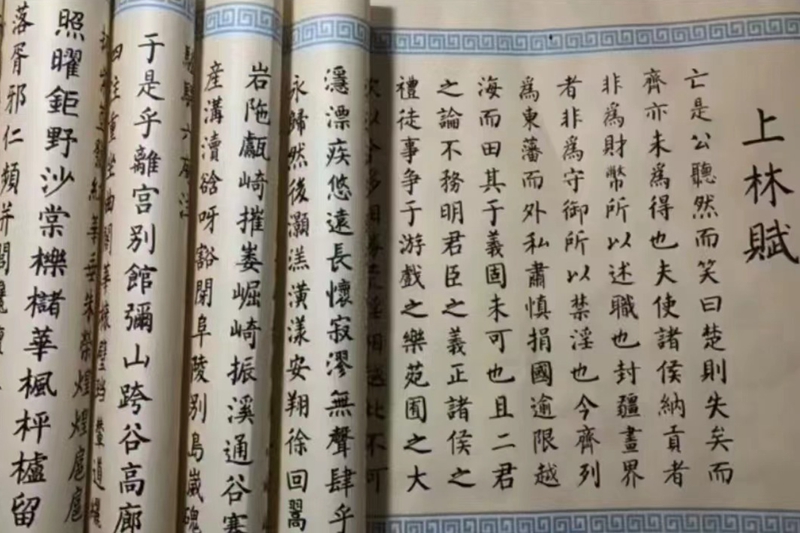 上林賦
亡是公聽然而笑曰楚則失矣而
齊亦未爲得也夫使諸侯納貢者
非爲財幣所以述職也封疆畫界
者非爲守御所以禁淫也今齊列
爲東藩而外私肅慎捐國逾限越
海而田其于義固未可也且二君
之論不務明君臣之義正諸侯之
禮徒事争于游戲之樂苑囿之大
相越此不可
濦漂疾悠遠長懷寂漻無聲肆乎
永歸然後灝溔潢漾安翔徐回翯
岩陁甗崎摧崣崛崎振溪通谷蹇
產溝瀆谽呀豁閕阜陵別島崴磈
于是乎離宮別館彌山跨谷高廊
四注重坐曲閣華榱璧璫輦道纚
垂朱榮煌煌扈扈
照曜鉅野沙棠櫟櫧華楓枰櫨留
落胥邪仁頻并閭欃檀